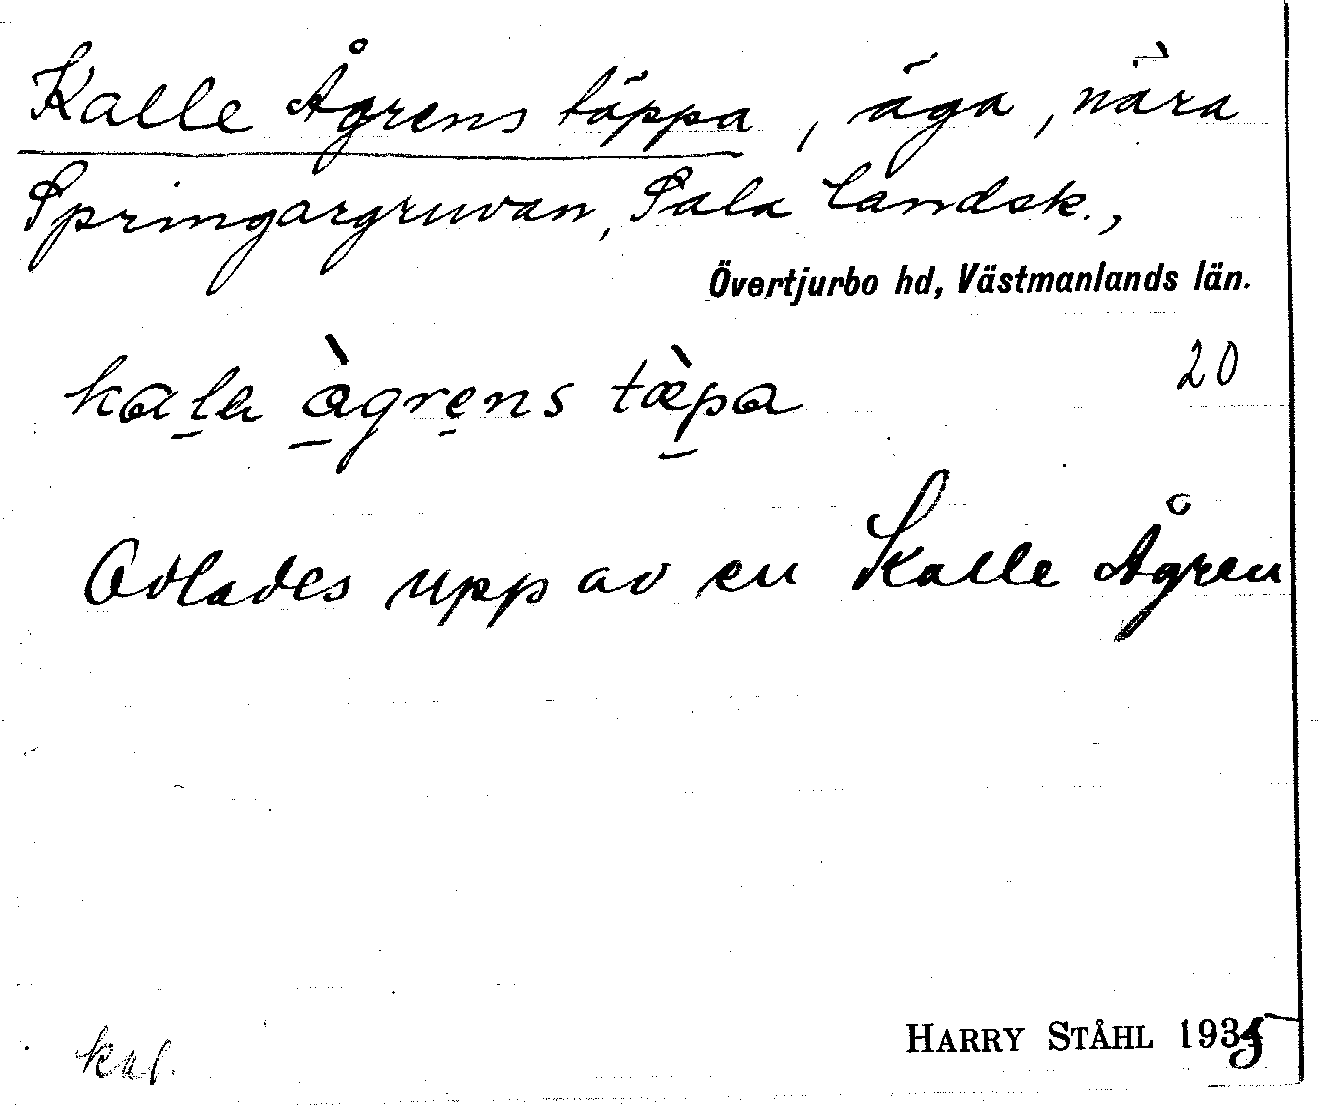 Kalle Ågrens täppa, äga, nära
Springargruvan, Sala landsk.,
Övertjurbo hd, Västmanlands län.
20
kala àgrens tæ̀pa
Odlades upp av en Kalle Ågren
HARRY STÅHL 1935